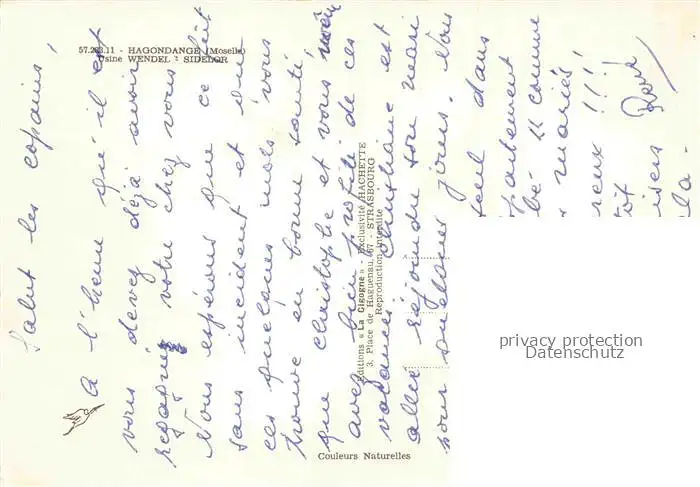 57.283.11 - HAGONDANGE (Moselle)
Usine WENDEL - SIDELOR
Salut les copains!
A l'heure qu'il est
vous devez déjà avoir
regagné votre chez vous
Nous espérons que ce fût
sans incident et que
ces quelques mots vous
trouve en bonne santé,
que Christophe et vous même
avez bien profité de ces
vacances. Christiane est
allée rejoindre son mari
pour quelques jours. Nous
seul dans
partement
bé "comme
mariés
reux !!!
tôt
isers
la-
René
Editions « La Cigogne » - Exclusivité HACHETTE
3, Place de Haguenau, 67 - STRASBOURG
Reproduction Interdite
Couleurs Naturelles
privacy protection
Datenschutz